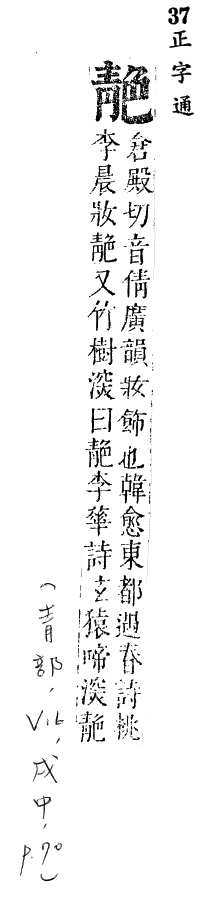 37正字通
靘
倉殿切音倩廣韻妝飾也韓愈東都遇春詩桃
李晨妝靘又竹樹深曰靘李華詩玄猿啼深靘
(青部, V.16, 戌中, p.70)